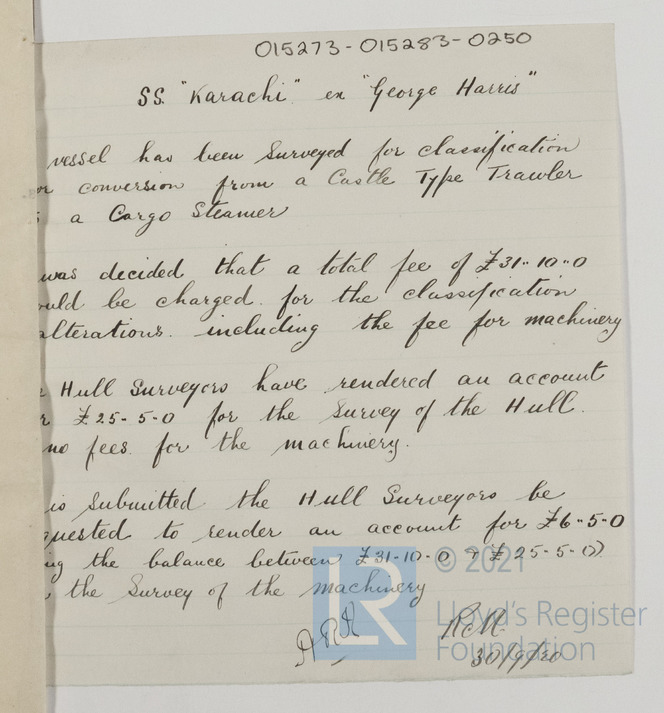 015273-015283-0250
SS. "Karachi" ex "George Harris"
vessel has been Surveyed for classification
or conversion from a Castle Type Trawler
a Cargo Steamer
was decided that a total fee of £31-10-0
ould be charged for the classification
alterations including the fee for machinery
Hull Surveyors have rendered an account
r £25-5-0 for the Survey of the Hull.
no fees for the machinery.
is submitted the Hull Surveyors be
quested to render an account for £6-5-0
ng the balance between £31-10-0 & £25-5-0)
the Survey of the machinery
ARK
30/9/20
LR
© 2021
Lloyd's Register
Foundation